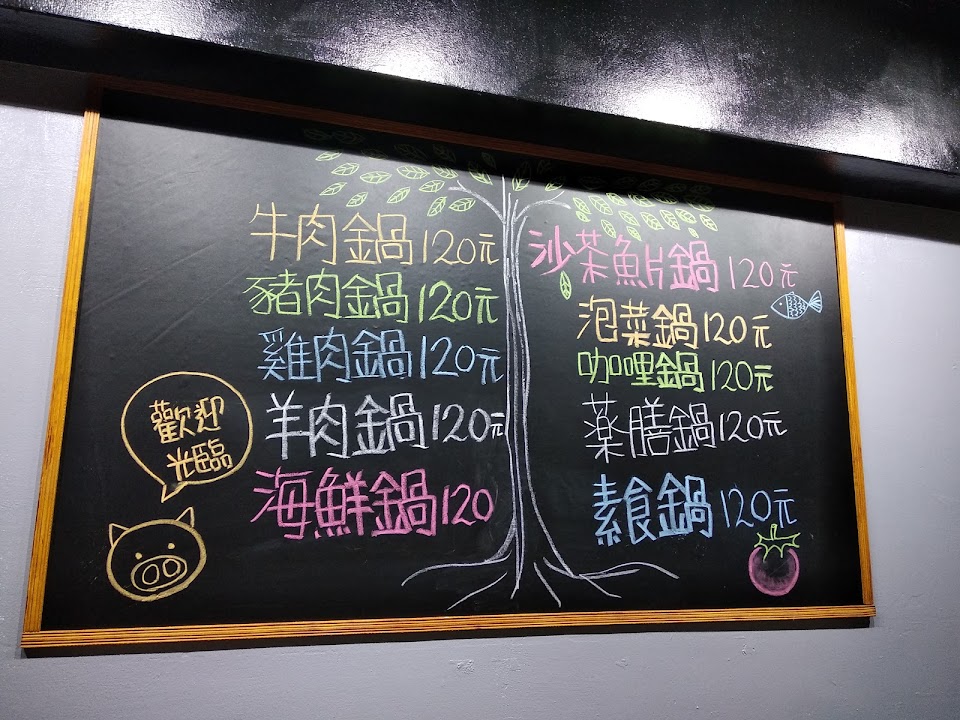 牛肉鍋120元
豬肉鍋120元
雞肉鍋120元
羊肉鍋120元
海鮮鍋120
沙茶魚片鍋120元
泡菜鍋120元
咖哩鍋120元
薬膳鍋120元
素食鍋120元
歡迎
光臨